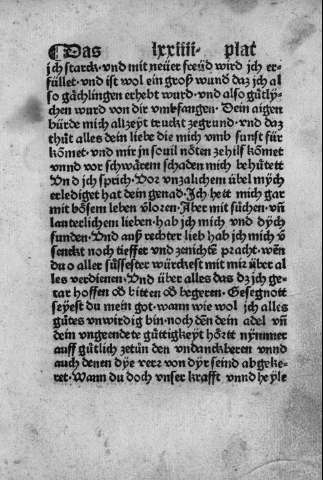 ¶Das lxxiiii· plat
jch starck· vnd mit neüer freüd wird jch er⸗
füllet· vnd ist wol ein groß wund̄ daz jch al
so gächlingen erhebt wurd· vnd also gütly⸗
chen wurd von dir vmbfangen· Dein aigen
bürde mich allzeyt truckt zegrund· vnd daz
thüt alles dein liebe die mich vmb sunst für
kōmet· vnd mir jn so vil nōten ze hilf kōmet
vnnd vor schwärem schaden mich behüttet
Vnd jch sprich· Vor vnzalichem übel mych
erlediget hat dein genad· Jch hett mich gar
mit bösem leben v̓loren· Aber mit süchen· vn̄
lauterlichem lieben· hab jch mich vnd dych
funden· Vnd auß rechter lieb hab jch mich v̓
senckt noch tieffer vnd zenichtē pracht· wen̄
du o aller süssester würckest mit mir über al
les verdienen· Vnd über alles das dz jch ge⸗
tar hoffen od̓ bitten od̓ begeren· Gesegnott
seyest du mein got· wann wie wol jch alles
gütes vnwirdig bin· noch den̄ dein adel vn̄
dein vngeendete güttigkeyt hörtt nymmer
auff gütlich zetün den vndanckberen vnnd
auch denen dye verr von dyr seind abgeke⸗
ret· Mann du doch vnser krafft vnnd heyle